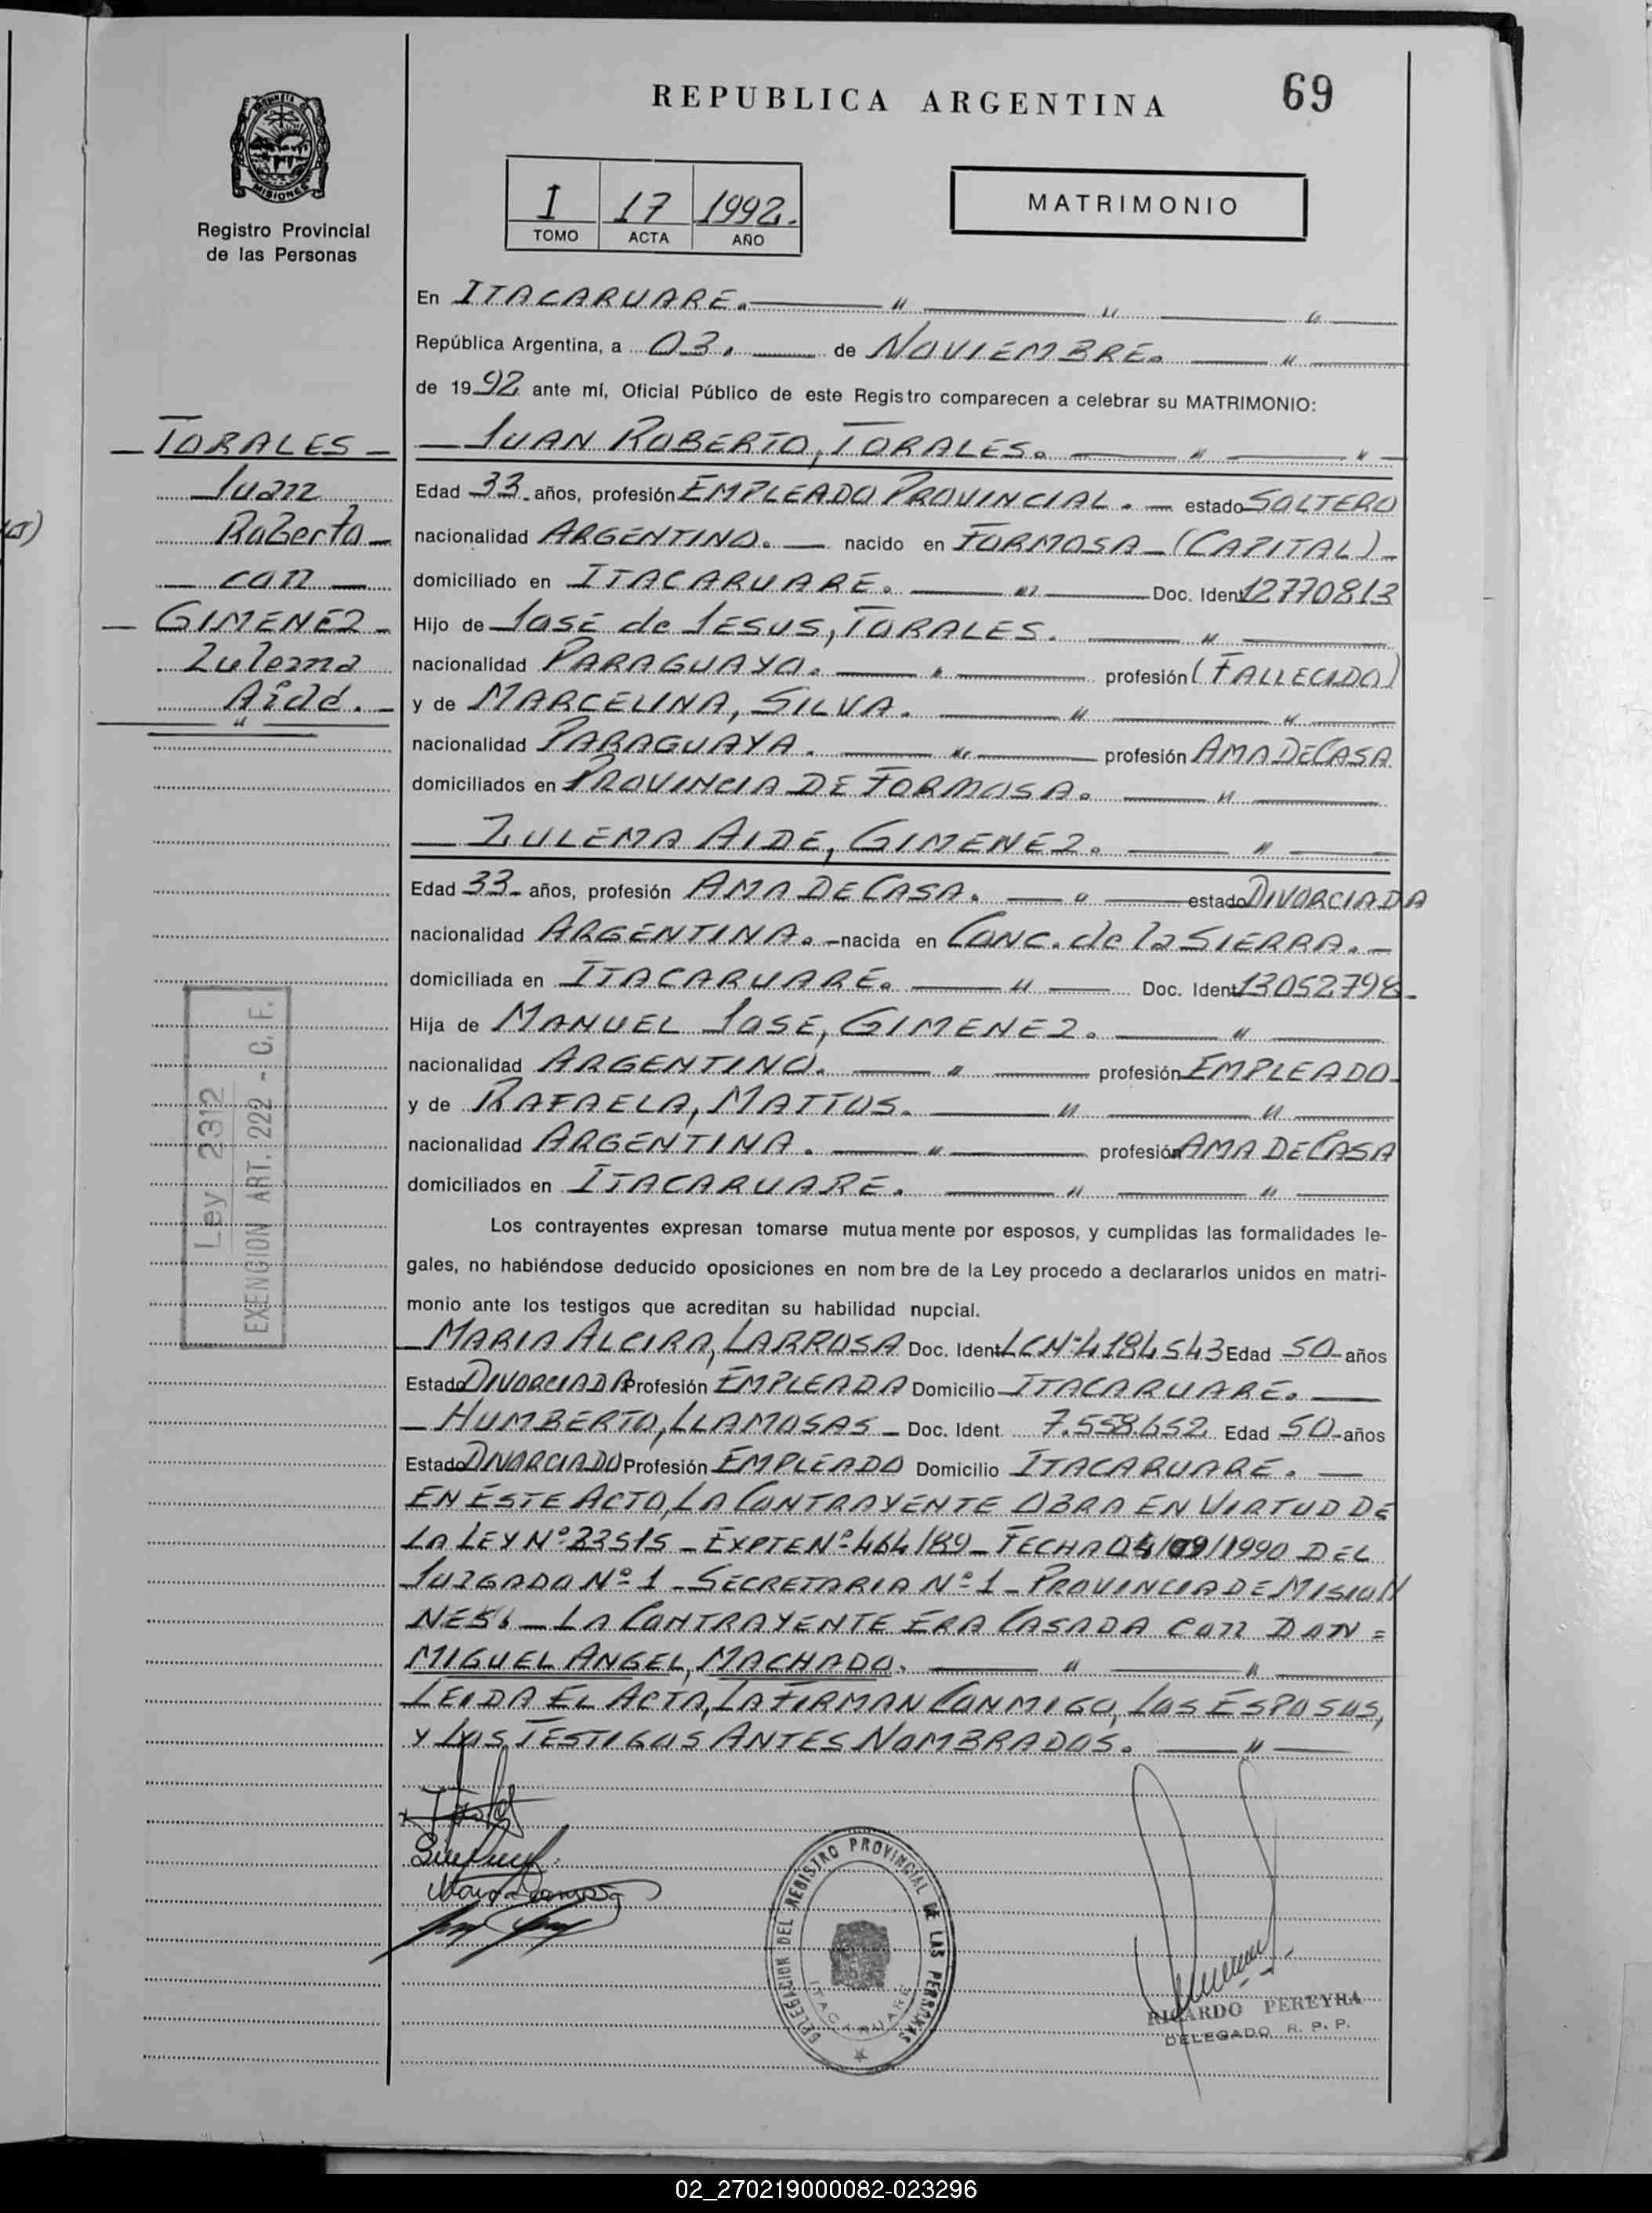 REPUBLICA ARGENTINA
69
PROVINCIA DE
MISIONES
Registro Provincial
de las Personas
I 17 1992.
TOMO ACTA AÑO
MATRIMONIO
En ITACARUARE. — " — " — " —
República Argentina, a 03. — de NOVIEMBRE. — " —
de 1992 ante mí, Oficial Público de este Registro comparecen a celebrar su MATRIMONIO:
— TORALES —
Juan
Roberto —
— con —
— GIMENEZ —
Zulema
Aidé. —
"
— JUAN ROBERTO, TORALES. — " — " —
Edad 33 años, profesión EMPLEADO PROVINCIAL. — estado SOLTERO
nacionalidad ARGENTINO. — nacido en FORMOSA — (CAPITAL) —
domiciliado en ITACARUARE. — " — Doc. Ident 12770813
Hijo de JOSÉ de JESUS, TORALES. — " —
nacionalidad PARAGUAYO. — " — profesión (FALLECIDO)
y de MARCELINA, SILVA. — " — " —
nacionalidad PARAGUAYA. — " — profesión AMA DE CASA
domiciliados en PROVINCIA DE FORMOSA. — " —
— ZULEMA AIDE, GIMENEZ. — " —
Edad 33 años, profesión AMA DE CASA. — " — estado DIVORCIADA
nacionalidad ARGENTINA. — nacida en CONC. de la SIERRA. —
domiciliada en ITACARUARE. — " — Doc. Ident 13052798 —
Hija de MANUEL JOSE, GIMENEZ. — " —
nacionalidad ARGENTINO. — " — profesión EMPLEADO
y de RAFAELA, MATTOS. — " — " —
nacionalidad ARGENTINA. — " — profesión AMA DE CASA
domiciliados en ITACARUARE. — " — " —
Ley 2312
EXENCION ART. 222 - C. F.
Los contrayentes expresan tomarse mutuamente por esposos, y cumplidas las formalidades le-
gales, no habiéndose deducido oposiciones en nombre de la Ley procedo a declararlos unidos en matri-
monio ante los testigos que acreditan su habilidad nupcial.
— MARIA ALCIRA, LARROSA Doc. Ident LCNº 4184543 Edad 50 años
Estado DIVORCIADA Profesión EMPLEADA Domicilio ITACARUARE. —
— HUMBERTO, LLAMOSAS — Doc. Ident. 7.558.652 Edad 50 años
Estado DIVORCIADO Profesión EMPLEADO Domicilio ITACARUARE. —
EN ESTE ACTO, LA CONTRAYENTE OBRA EN VIRTUD DE
LA LEY Nº 23515 — EXPTE Nº 464/89 — FECHA 04/09/1990 DEL
JUZGADO Nº 1 — SECRETARIA Nº 1 — PROVINCIA DE MISION
NES. — LA CONTRAYENTE ERA CASADA con DON =
MIGUEL ANGEL, MACHADO. — " — " —
LEIDA EL ACTA, LA FIRMAN CONMIGO, LOS ESPOSOS,
Y LOS TESTIGOS ANTES NOMBRADOS. — " —
DELEGACION DEL REGISTRO PROVINCIAL DE LAS PERSONAS
ITACARUARE
RICARDO PEREYRA
DELEGADO R. P. P.
02_270219000082-023296